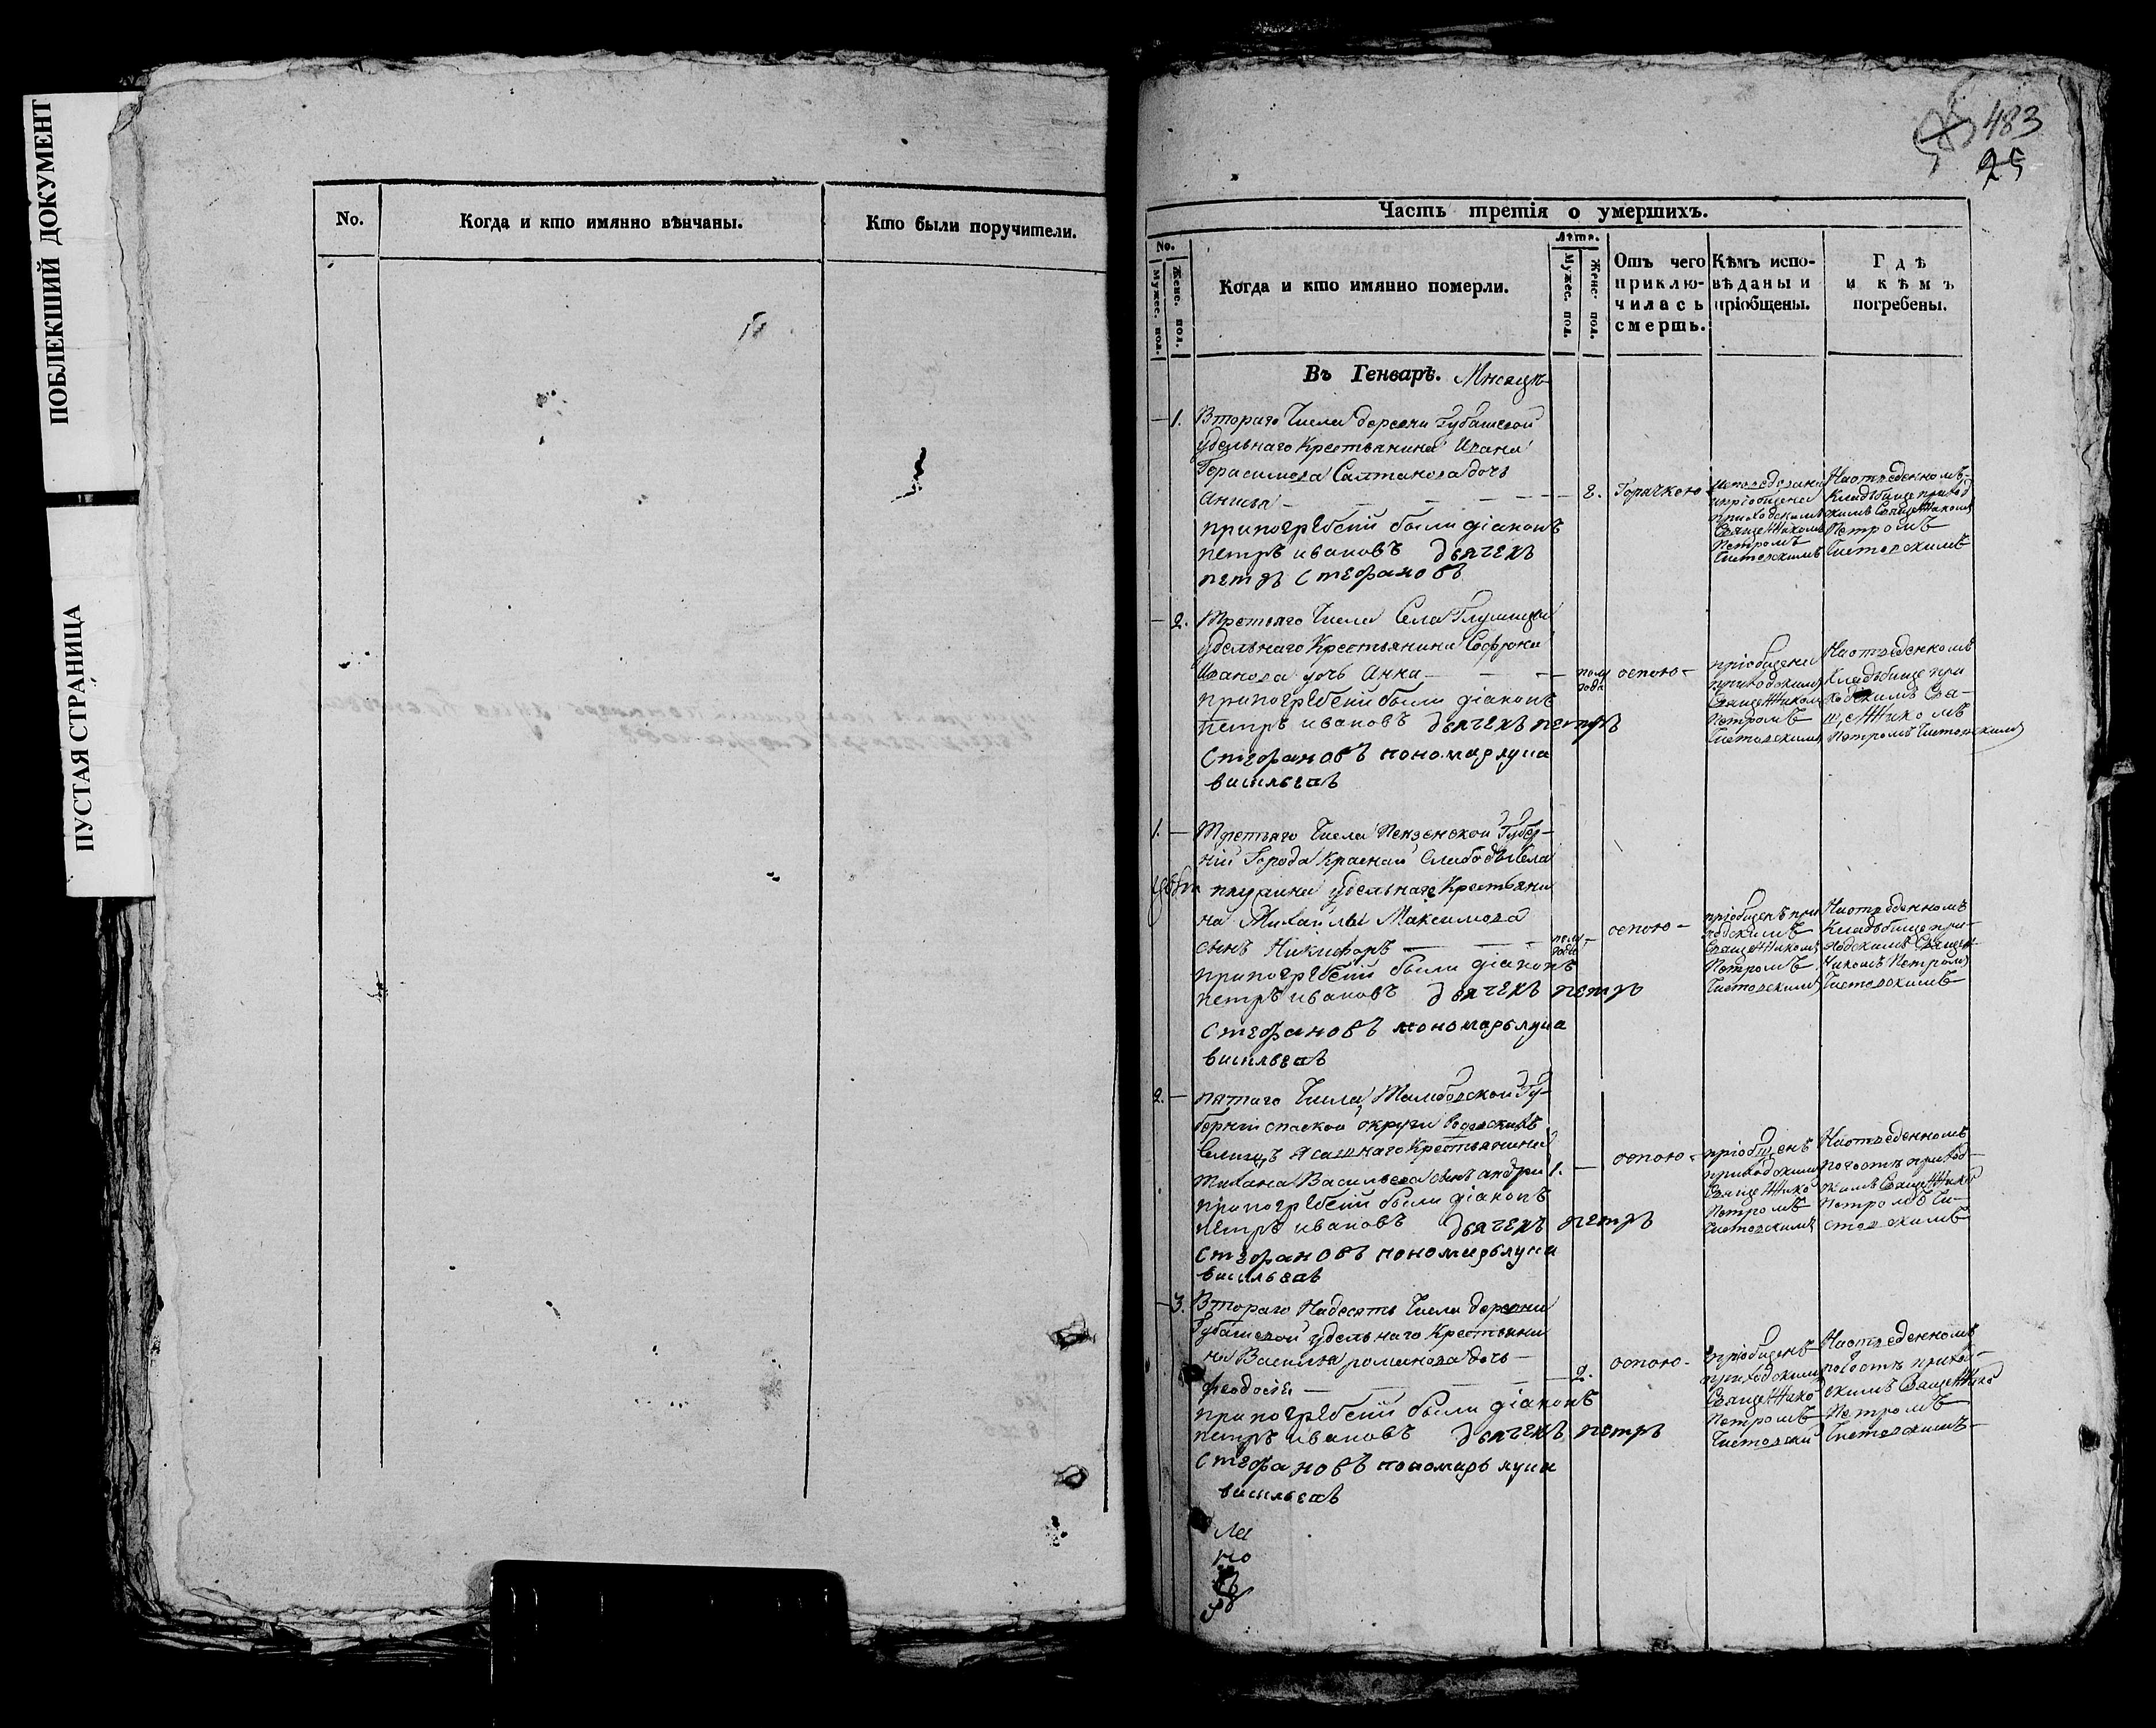 ПОБЛЕКШИЙ ДОКУМЕНТ
ПУСТАЯ СТРАНИЦА
No.
Когда и кто имянно вѣнчаны.
Кто были поручители.
483
25
Часть третія о умершихъ.
No.
Мужес. пол.
Женс. пол.
Когда и кто имянно померли.
Лѣта.
Мужес. пол.
Женс. пол.
Отъ чего
приклю-
чилась
смерть.
Кѣмъ испо-
вѣданы и
пріобщены.
Гдѣ
и кѣмъ
погребены.
Въ Генварѣ. Мѣсяцѣ
– 1.
Втораго Числа деревни Губашевой
удельнаго Крестьянина Ивана
Герасимова Салтанова дочь
Анисья
припогребении были діаконъ
петръ ивановъ дьячекъ
петръ Стефановъ
Горячкою
исповедована
и пріобщена
приходскимъ
Священникомъ
Петромъ
Чистовскимъ
На отведенномъ
Кладбище приход
скимъ Священникомъ
Петромъ
Чистовскимъ
– 2.
Третьяго Числа Села
удельнаго Крестьянина Софрона
Иванова дочь Анна
припогребении были діаконъ
петръ ивановъ дьячекъ петръ
Стефановъ пономарь лука
васильевъ
полу
года
оспою
пріобщена
приходскимъ
Священникомъ
Петромъ
Чистовскимъ
На отведенномъ
Кладбище при
ходскимъ Свя-
щенникомъ
Петромъ Чистовскимъ
1. –
Третьяго Числа Пензенской Губер-
ніи Города Красной Слободы Села
удельнаго Крестьяни
на Михайлы Максимова
сынъ Никифоръ
припогребении были діаконъ
петръ ивановъ дьячекъ петръ
Стефановъ пономарь лука
васильевъ
полу
года
оспою
пріобщенъ при
ходскимъ
Священникомъ
Петромъ
Чистовскимъ
На отведенномъ
Кладбище при-
ходскимъ Священ
никомъ Петромъ
Чистовскимъ
2. –
пятаго Числа Тамбовской Гу-
берніи спаской округи
ясашнаго Крестьянина
Васильева сынъ андрей
припогребении были діаконъ
петръ ивановъ дьячекъ петръ
Стефановъ пономарь лука
васильевъ
1. –
оспою
пріобщенъ
приходскимъ
Священнико
Петромъ
Чистовскимъ
На отведенномъ
погосте приход-
скимъ Священнико
Петромъ Чи-
стовскимъ
– 3.
Втораго Надесять Числа деревни
Губашевой удельнаго Крестьяни
на Василья романова дочь
феодосія
припогребении были діаконъ
петръ ивановъ дьячекъ петръ
Стефановъ пономарь лука
васильевъ
2.
оспою
пріобщенъ
приходскимъ
Священнико
Петромъ
Чистовски
На отведенномъ
погосте приход-
скимъ Священнико
Петромъ
Чистовскимъ